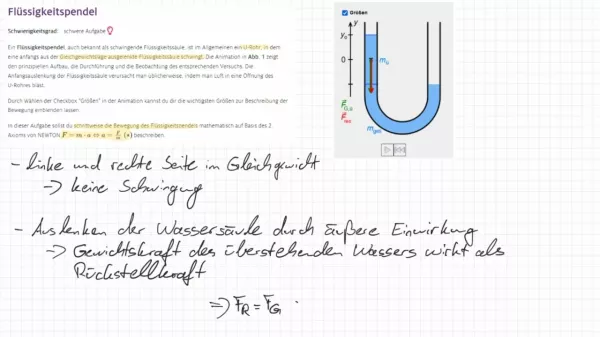 Flüssigkeitspendel
Schwierigkeitsgrad: schwere Aufgabe
Ein Flüssigkeitspendel, auch bekannt als schwingende Flüssigkeitssäule, ist im Allgemeinen ein U-Rohr, in dem
eine anfangs aus der Gleichgewichtslage ausgelenkte Flüssigkeitssäule schwingt. Die Animation in Abb. 1 zeigt
den prinzipiellen Aufbau, die Durchführung und die Beobachtung des entsprechenden Versuchs. Die
Anfangsauslenkung der Flüssigkeitssäule verursacht man üblicherweise, indem man Luft in eine Öffnung des
U-Rohres bläst.
Durch Wählen der Checkbox "Größen" in der Animation kannst du dir die wichtigsten Größen zur Beschreibung der
Bewegung einblenden lassen.
In dieser Aufgabe sollst du schrittweise die Bewegung des Flüssigkeitspendels mathematisch auf Basis des 2.
Axioms von NEWTON F = m · a ⇔ a = F/m (*) beschreiben.
Größen
y
y₀
0
mü
mges
- linke und rechte Seite im Gleichgewicht
→ keine Schwingung
- Auslenken der Wassersäule durch äußere Einwirkung
→ Gewichtskraft des überstehenden Wassers wirkt als
Rückstellkraft
⇒ F_R = F_G